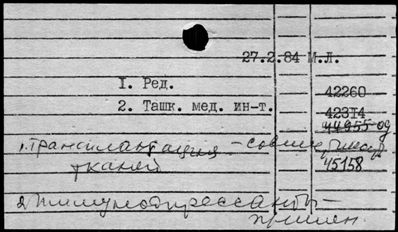 27.2.84 М.Л.
1. Ред.
42260
2. Ташк. мед. ин-т.
42314
44955-09
1. Трансплантация - совмест.
тканей
45158
2. Иммунодепрессанты -
примен.